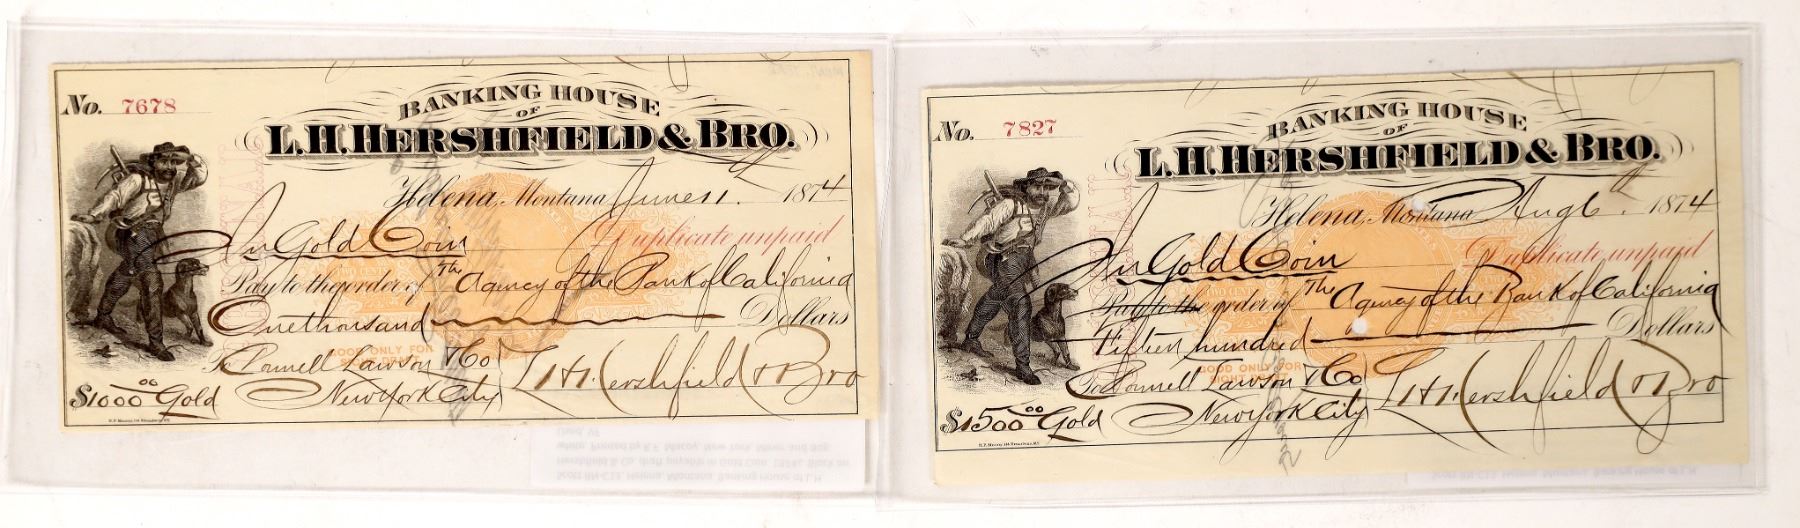 No. 7678
BANKING HOUSE
OF
L.H. HERSHFIELD & BRO.
Helena, Montana June 1 1874
In Gold Coin Duplicate unpaid
Pay to the order of The Agency of the Bank of California
One thousand Dollars
TWO CENTS
GOOD ONLY FOR
To Donnell Lawson & Co L H Hershfield & Bro
New York City
$1000 00 Gold
No. 7827
BANKING HOUSE
OF
L.H. HERSHFIELD & BRO.
Helena, Montana Aug 6 1874
In Gold Coin Duplicate unpaid
Pay to the order of The Agency of the Bank of California
Fifteen hundred Dollars
TWO CENTS
GOOD ONLY FOR
SIGHT DRAFT
To Donnell Lawson & Co L H Hershfield & Bro
New York City
$1500 00 Gold